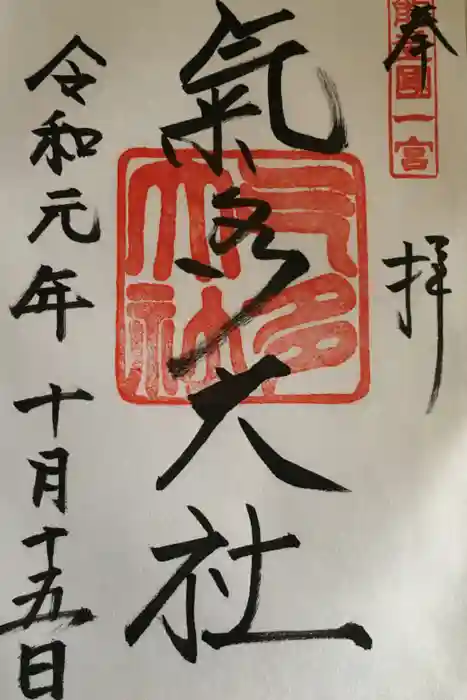 奉拝
能登國一宮
氣多大社
气多大社
令和元年十月十五日